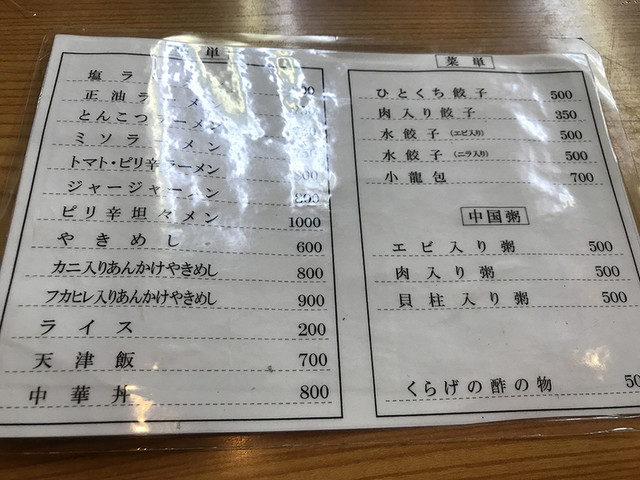 単
塩 ラ
正油ラーメ
とんこつラーメン
ミソ ラ メン
トマト・ピリ辛ラーメン
ジャージャーメン 800
ピリ辛坦々メン 1000
やきめし 600
カニ入りあんかけやきめし 800
フカヒレ入りあんかけやきめし 900
ライス 200
天津飯 700
中華丼 800
菜単
ひとくち餃子 500
肉入り餃子 350
水餃子(エビ入り) 500
水餃子(ニラ入り) 500
小龍包 700
中国粥
エビ入り粥 500
肉入り粥 500
貝柱入り粥 500
くらげの酢の物 50